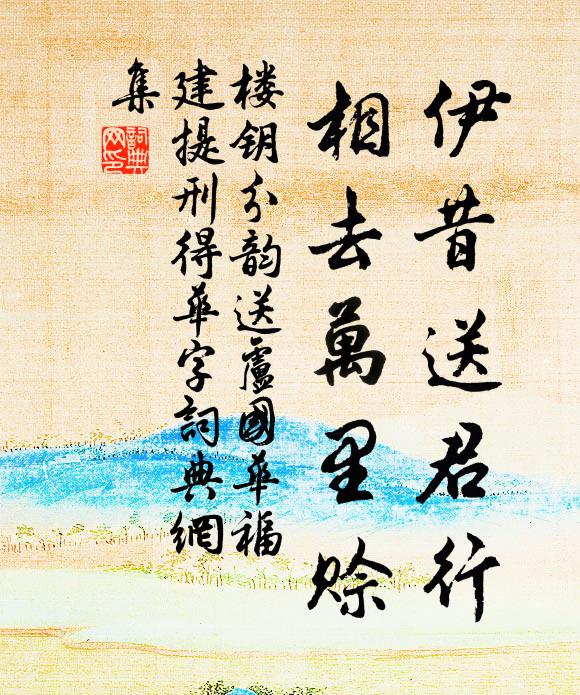 伊昔送君行
相去萬里賖
楼钥分韵送盧國華福
建提刑得華字詞典網
集
詞典网印